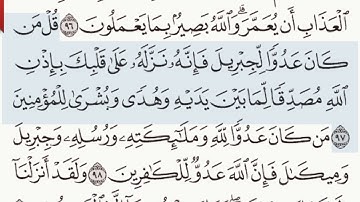 ٱلْعَذَابِ أَن يُعَمَّرَ ۗ وَٱللَّهُ بَصِيرٌۢ بِمَا يَعْمَلُونَ ٩٦ قُلْ مَن
كَانَ عَدُوًّا لِّجِبْرِيلَ فَإِنَّهُۥ نَزَّلَهُۥ عَلَىٰ قَلْبِكَ بِإِذْنِ
ٱللَّهِ مُصَدِّقًا لِّمَا بَيْنَ يَدَيْهِ وَهُدًى وَبُشْرَىٰ لِلْمُؤْمِنِينَ
٩٧ مَن كَانَ عَدُوًّا لِّلَّهِ وَمَلَٰٓئِكَتِهِۦ وَرُسُلِهِۦ وَجِبْرِيلَ
وَمِيكَىٰلَ فَإِنَّ ٱللَّهَ عَدُوٌّ لِّلْكَٰفِرِينَ ٩٨ وَلَقَدْ أَنزَلْنَآ